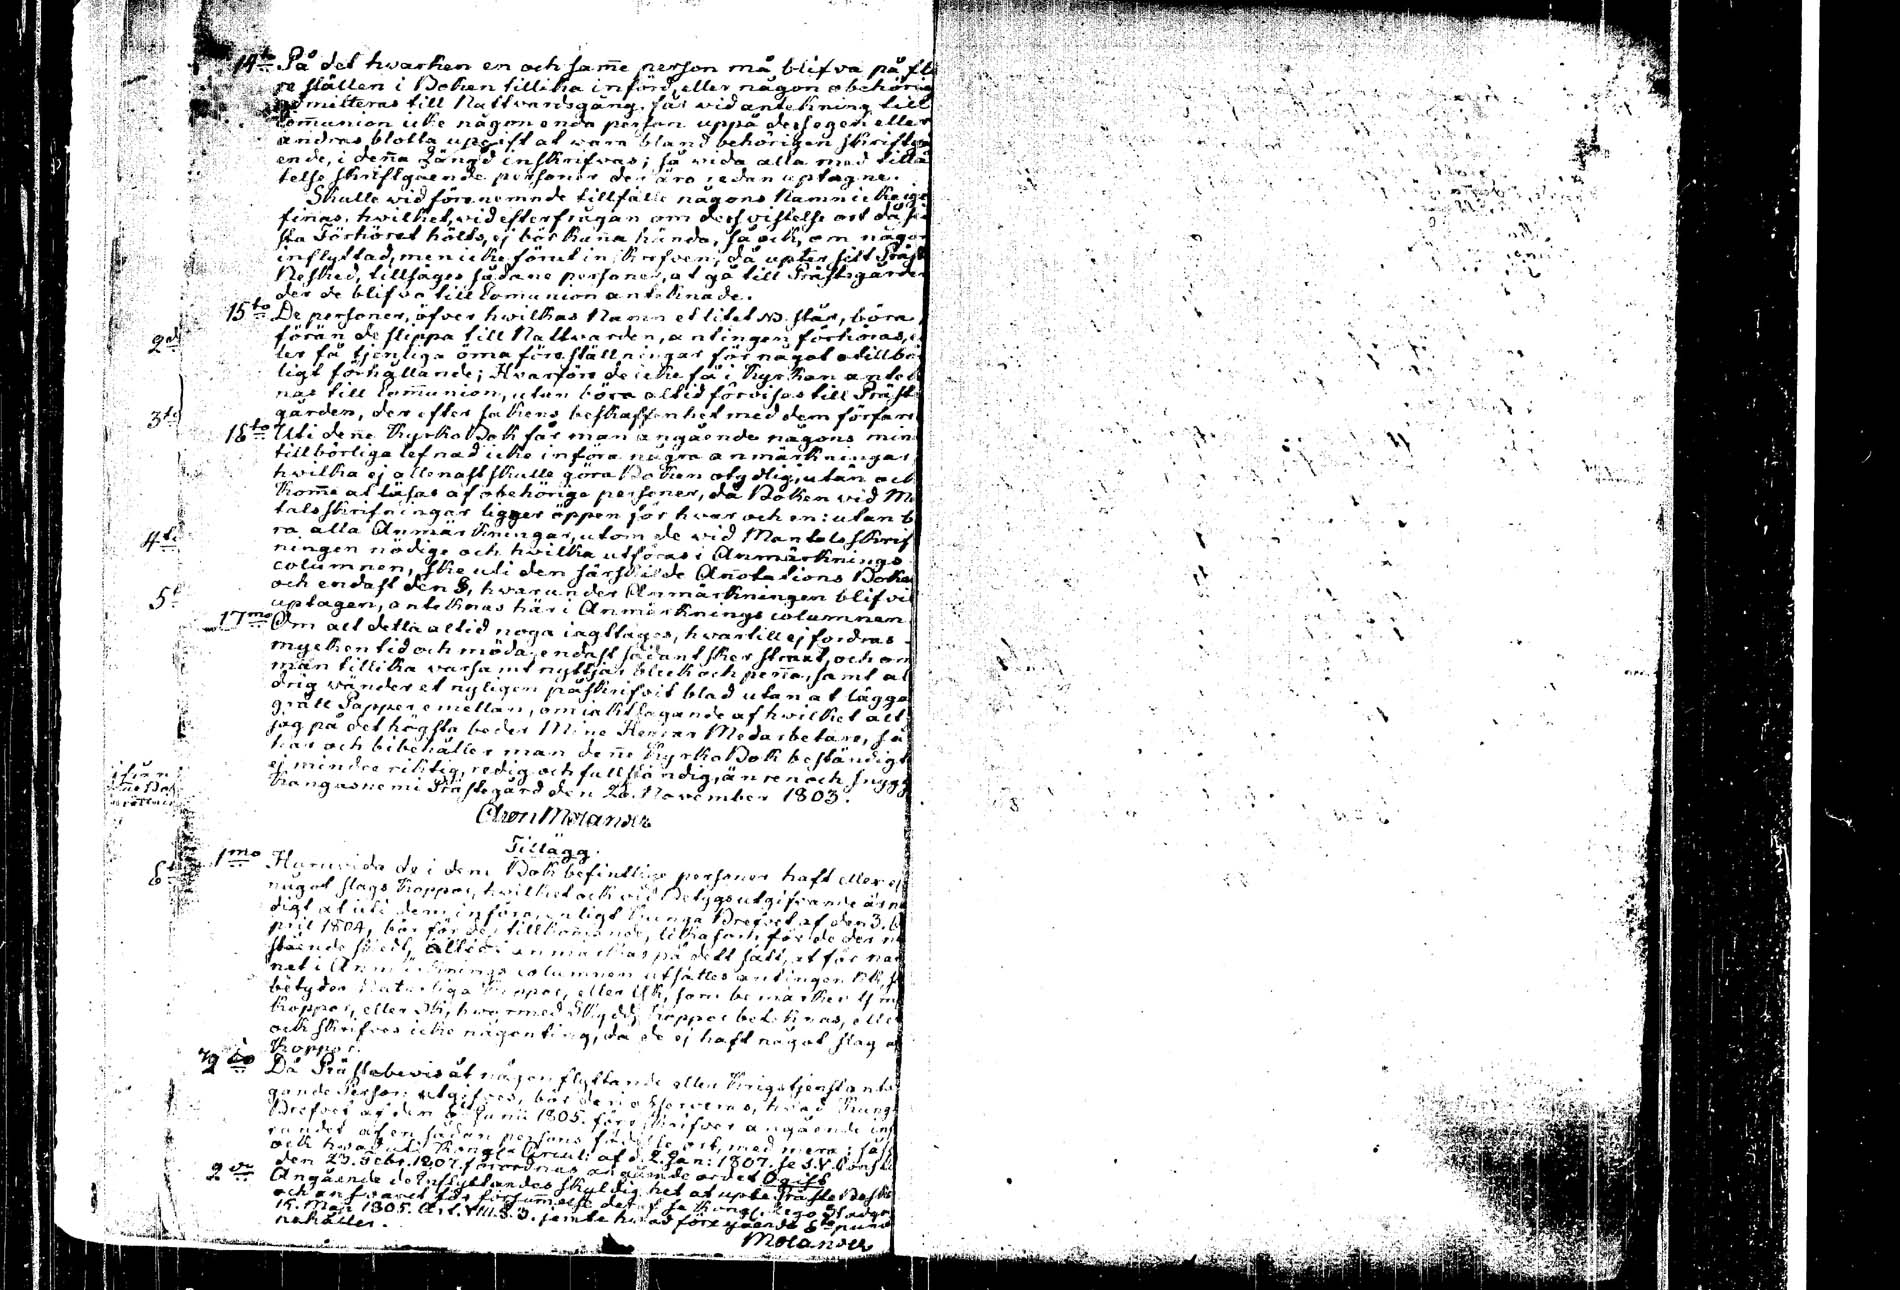 14to På det hwarken en och same person må blifva på fle
re ställen i Boken tillika införd, eller någon obehörig
admitteras till Nattvardsgång, får vid antekning till
Communion icke någon enda person uppå dess egen eller
andras blotta upgift at vara bland behörigen skriftgå
ende, i denna Längd inskrifvas; så vida alla med tillå
telse skriftgående personer der äro redan uptagne.
Skulle vid förenemnde tillfälle någons Namn icke ige
finas, hvilket, vid efterfrågan om dess vistelse ort då si
sta Förhöret hölts, ej bör kunna hända, så ock, om någon
inflyttad, men icke förut inskrefven, då upter sitt Präst
Besked, tillsäges sådane personer, at gå till Prästegården
der de blifva till Communion anteknade.
15to De personer, öfver hvilkas Namn et litet NB. står, böra,
förän de slippa till Nattvarden, antingen förhöras, el
ler få tjenliga öma föreställningar för något otillbör
ligt förhållande; Hvarföre de icke få i Kyrkan antek
nas till Communion, utan böra altid förvisas till Präste
gården, der efter sakens beskaffenhet med dem förfares
16to Uti denne Kyrko Bok får man angående någons min
tillbörliga lefnad icke införa några anmärkningar,
hvilka ej allenast skulle göra Boken otydlig, utan ock
komme at läsas af obehörige personer, då Boken vid Man
talsskrifningar ligger öppen för hvar och en: utan bö
ra alla Anmärkningar, utom de vid Mantalsskrif
ningen nödige och hvilka utföras i Anmärknings
columnen, ske uti den särskilde Annotations Boken
och endast den §, hvarunder Anmärkningen blifvit
uptagen, anteknas här i Anmärknings columnen
17mo Om alt detta altid noga iagttages, hvartill ej fordras
mycken tid och möda, endast sådant sker straxt, och om
man tillika varsamt nyttjar bleck och penna, samt al
drig vänder et nyligen påskrifvit blad utan at lägga
gråll Papper emellan, om iakttagande af hvilket alt
jag på det högsta beder Mine Herrar Medarbetare, så
har och bibehåller man denne Kyrko Bok beständigt
ej mindre riktig, redig och fullständig, än ren och snygg
Kangasniemi Prästegård den 20. November 1803.
Aron Molander
Tillägg.
1mo Huruvida de i denne Bok befintlige personer haft eller ej
något slags Koppor, hvilket ock vid Betygs utgifvande är nö
digt at uti dem införa, enligt Kunga Brefvet af den 3. A
pril 1804, bör för de tillkommande, lika som för de der
stående skedt, altid anmärkas på dett sätt, at för nam
net i Anmärknings columnen utsättes antingen NK, som
betyder Naturliga Koppor, eller YK, som bemärker Ymp
koppor, eller SK, hvarmed Skydds koppor beteknas, eller
ock skrifves icke någonting, då de ej haft något slag af
Koppor.
2do Då Prästebevis åt någon flyttande eller Krigstjenst anta
gande Person utgifves, bör derje observeras, hvad Kunga
Brefvet af den Junii 1805. föreskrifver angående inf
randet af en sådan persons födelse ort, med mera; såsom
ock hvad uti Kongl. Circul. af d. 2. Jan: 1807. se
den 23. Febr. 1807. förordnas angående ordet Ogift
Angående de Inflyttandes skyldighet at upte Präste Besked
och ansvaret för försummelse deraf se Kongl. Lego Stadgan
15. Maji 1805. Art. VIII. §. 3. jemte hvad föregående 6te punct
nehåller.
Molander
2do
3tio
4to
5to
6to